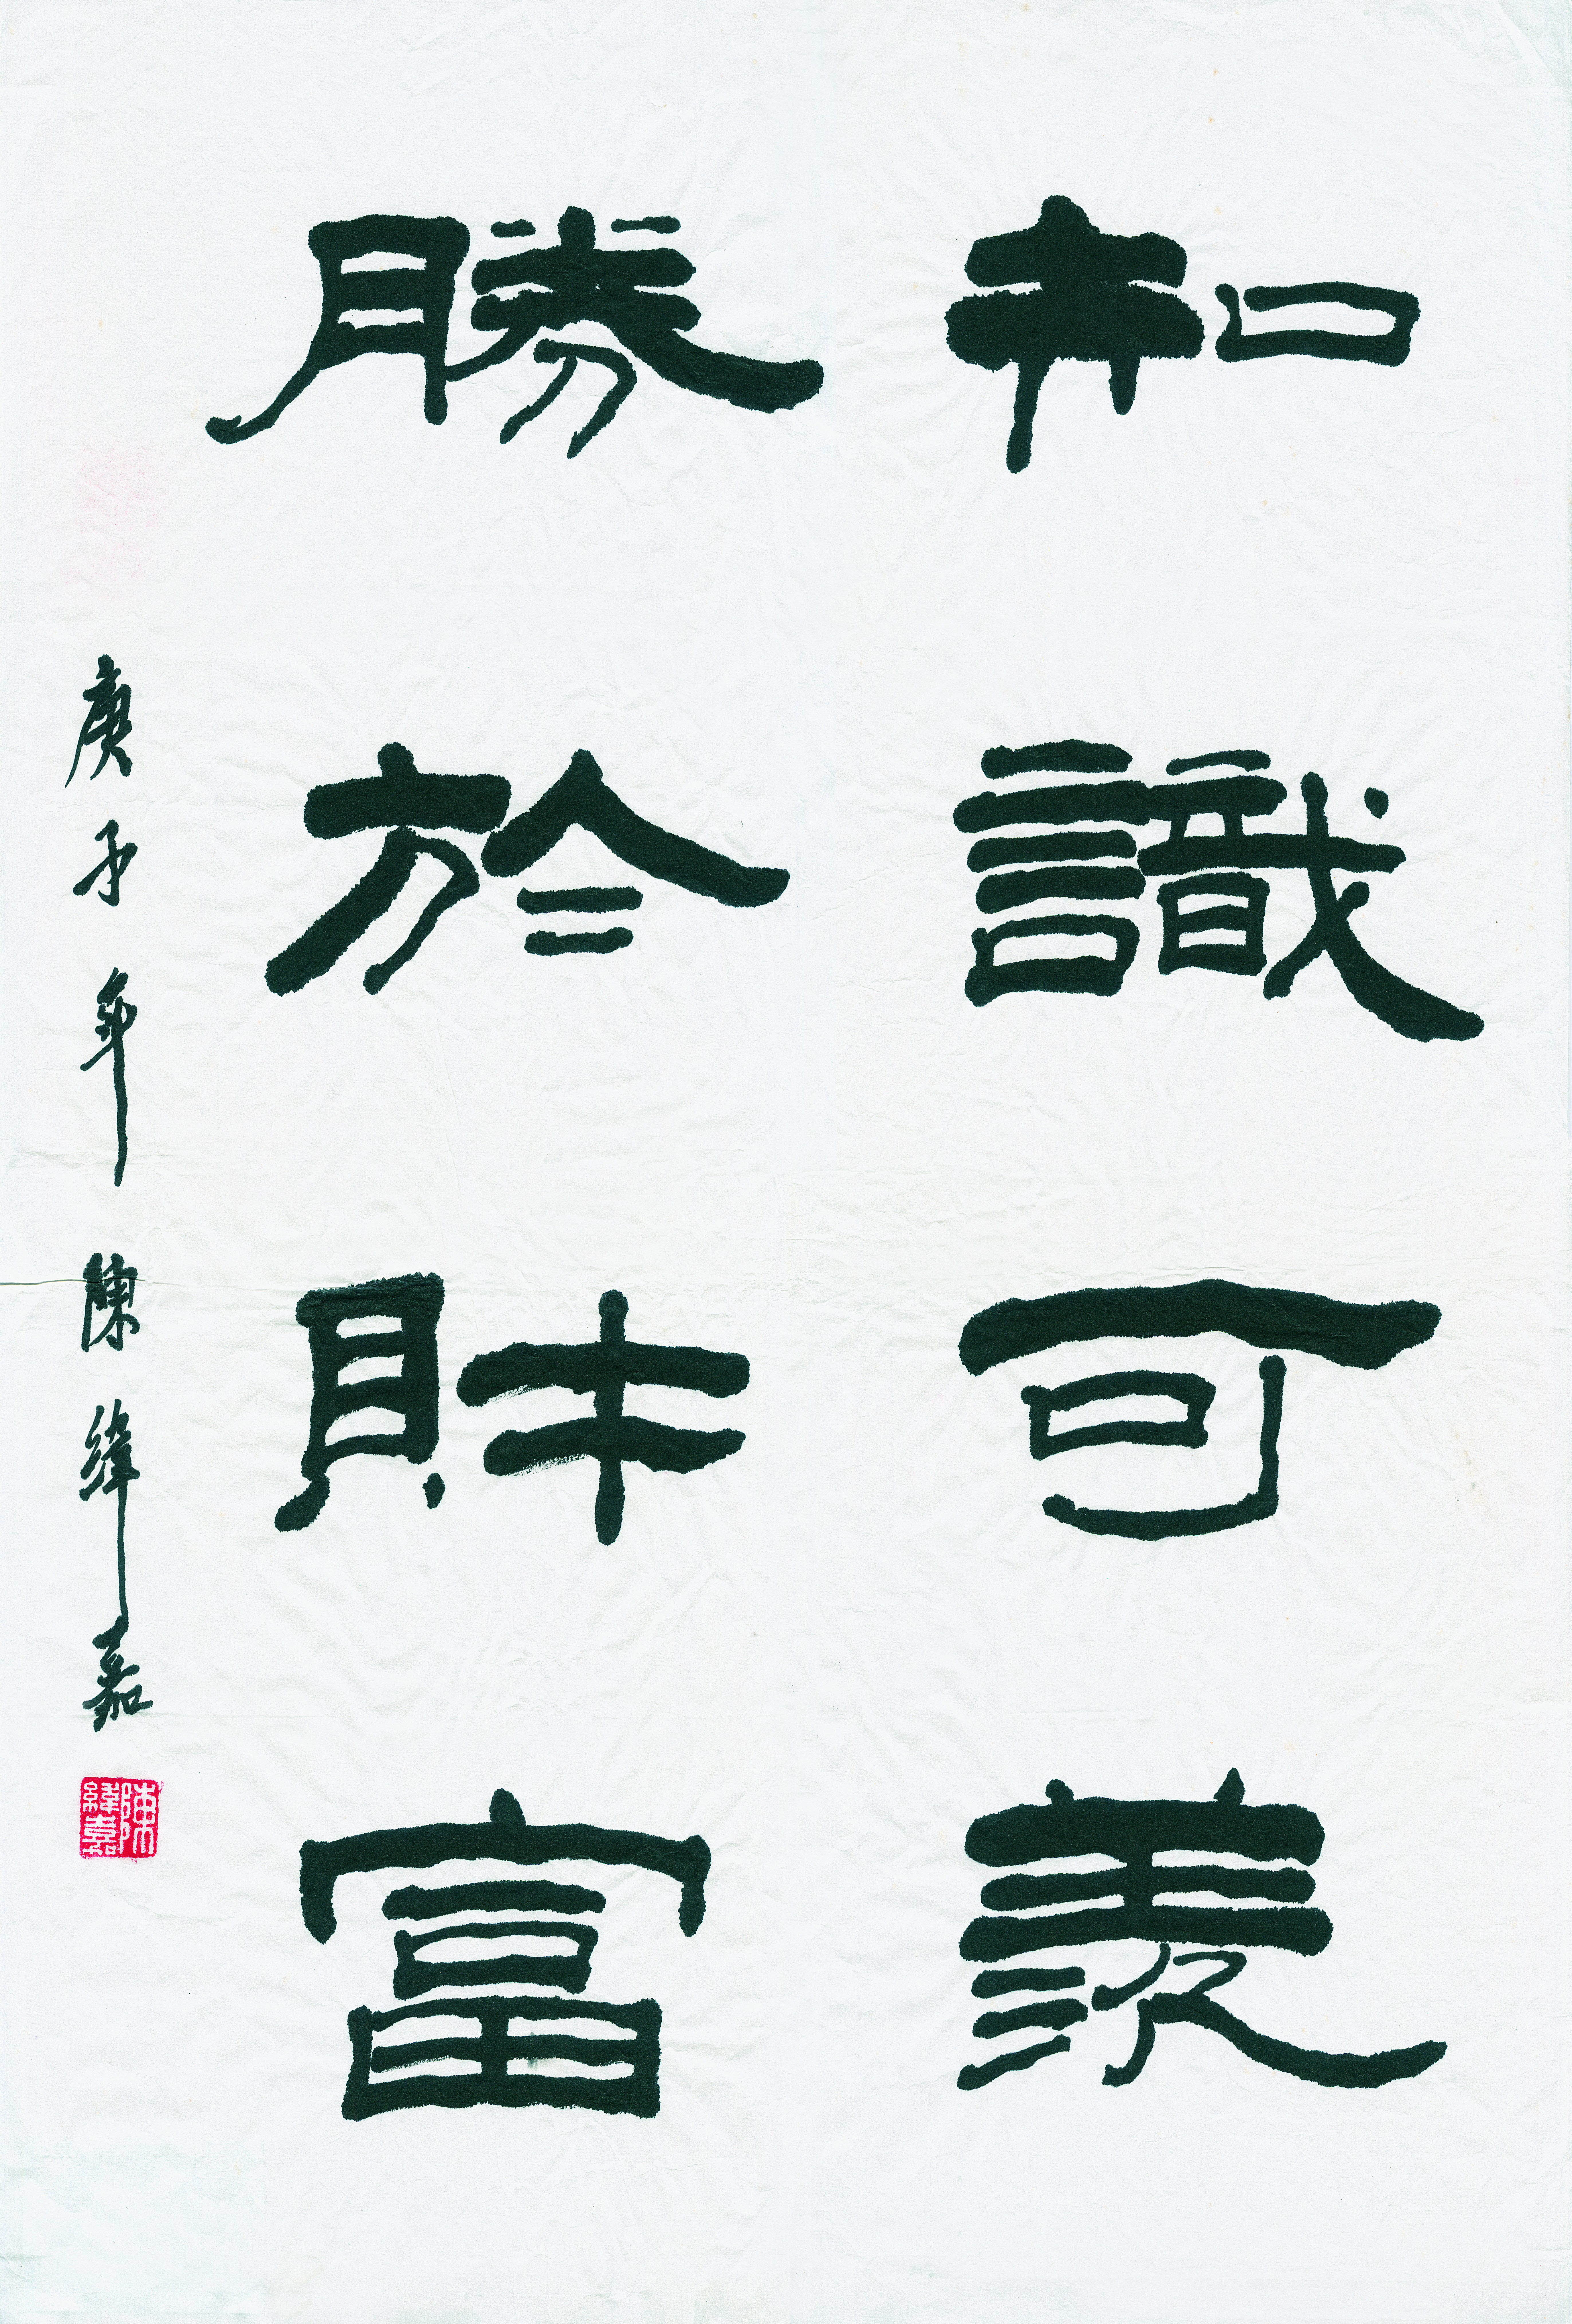 知識可羨
勝於財富
庚子年 陳緯嘉
陳緯嘉